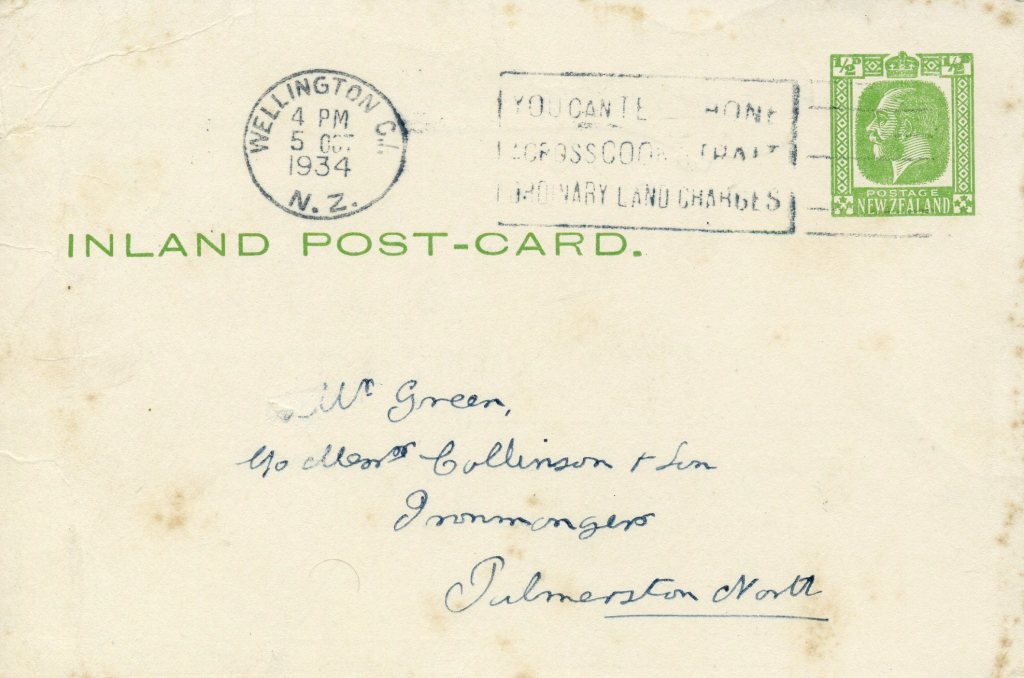 WELLINGTON C.1.
4 PM
5 OCT
1934
N.Z.
YOU CAN
ACROSS COOK
ORDINARY LAND CHARGES
½D ½D
POSTAGE
NEW ZEALAND
INLAND POST-CARD.
Mr Green,
c/o Messrs Collinson & Son
Ironmongers
Palmerston North